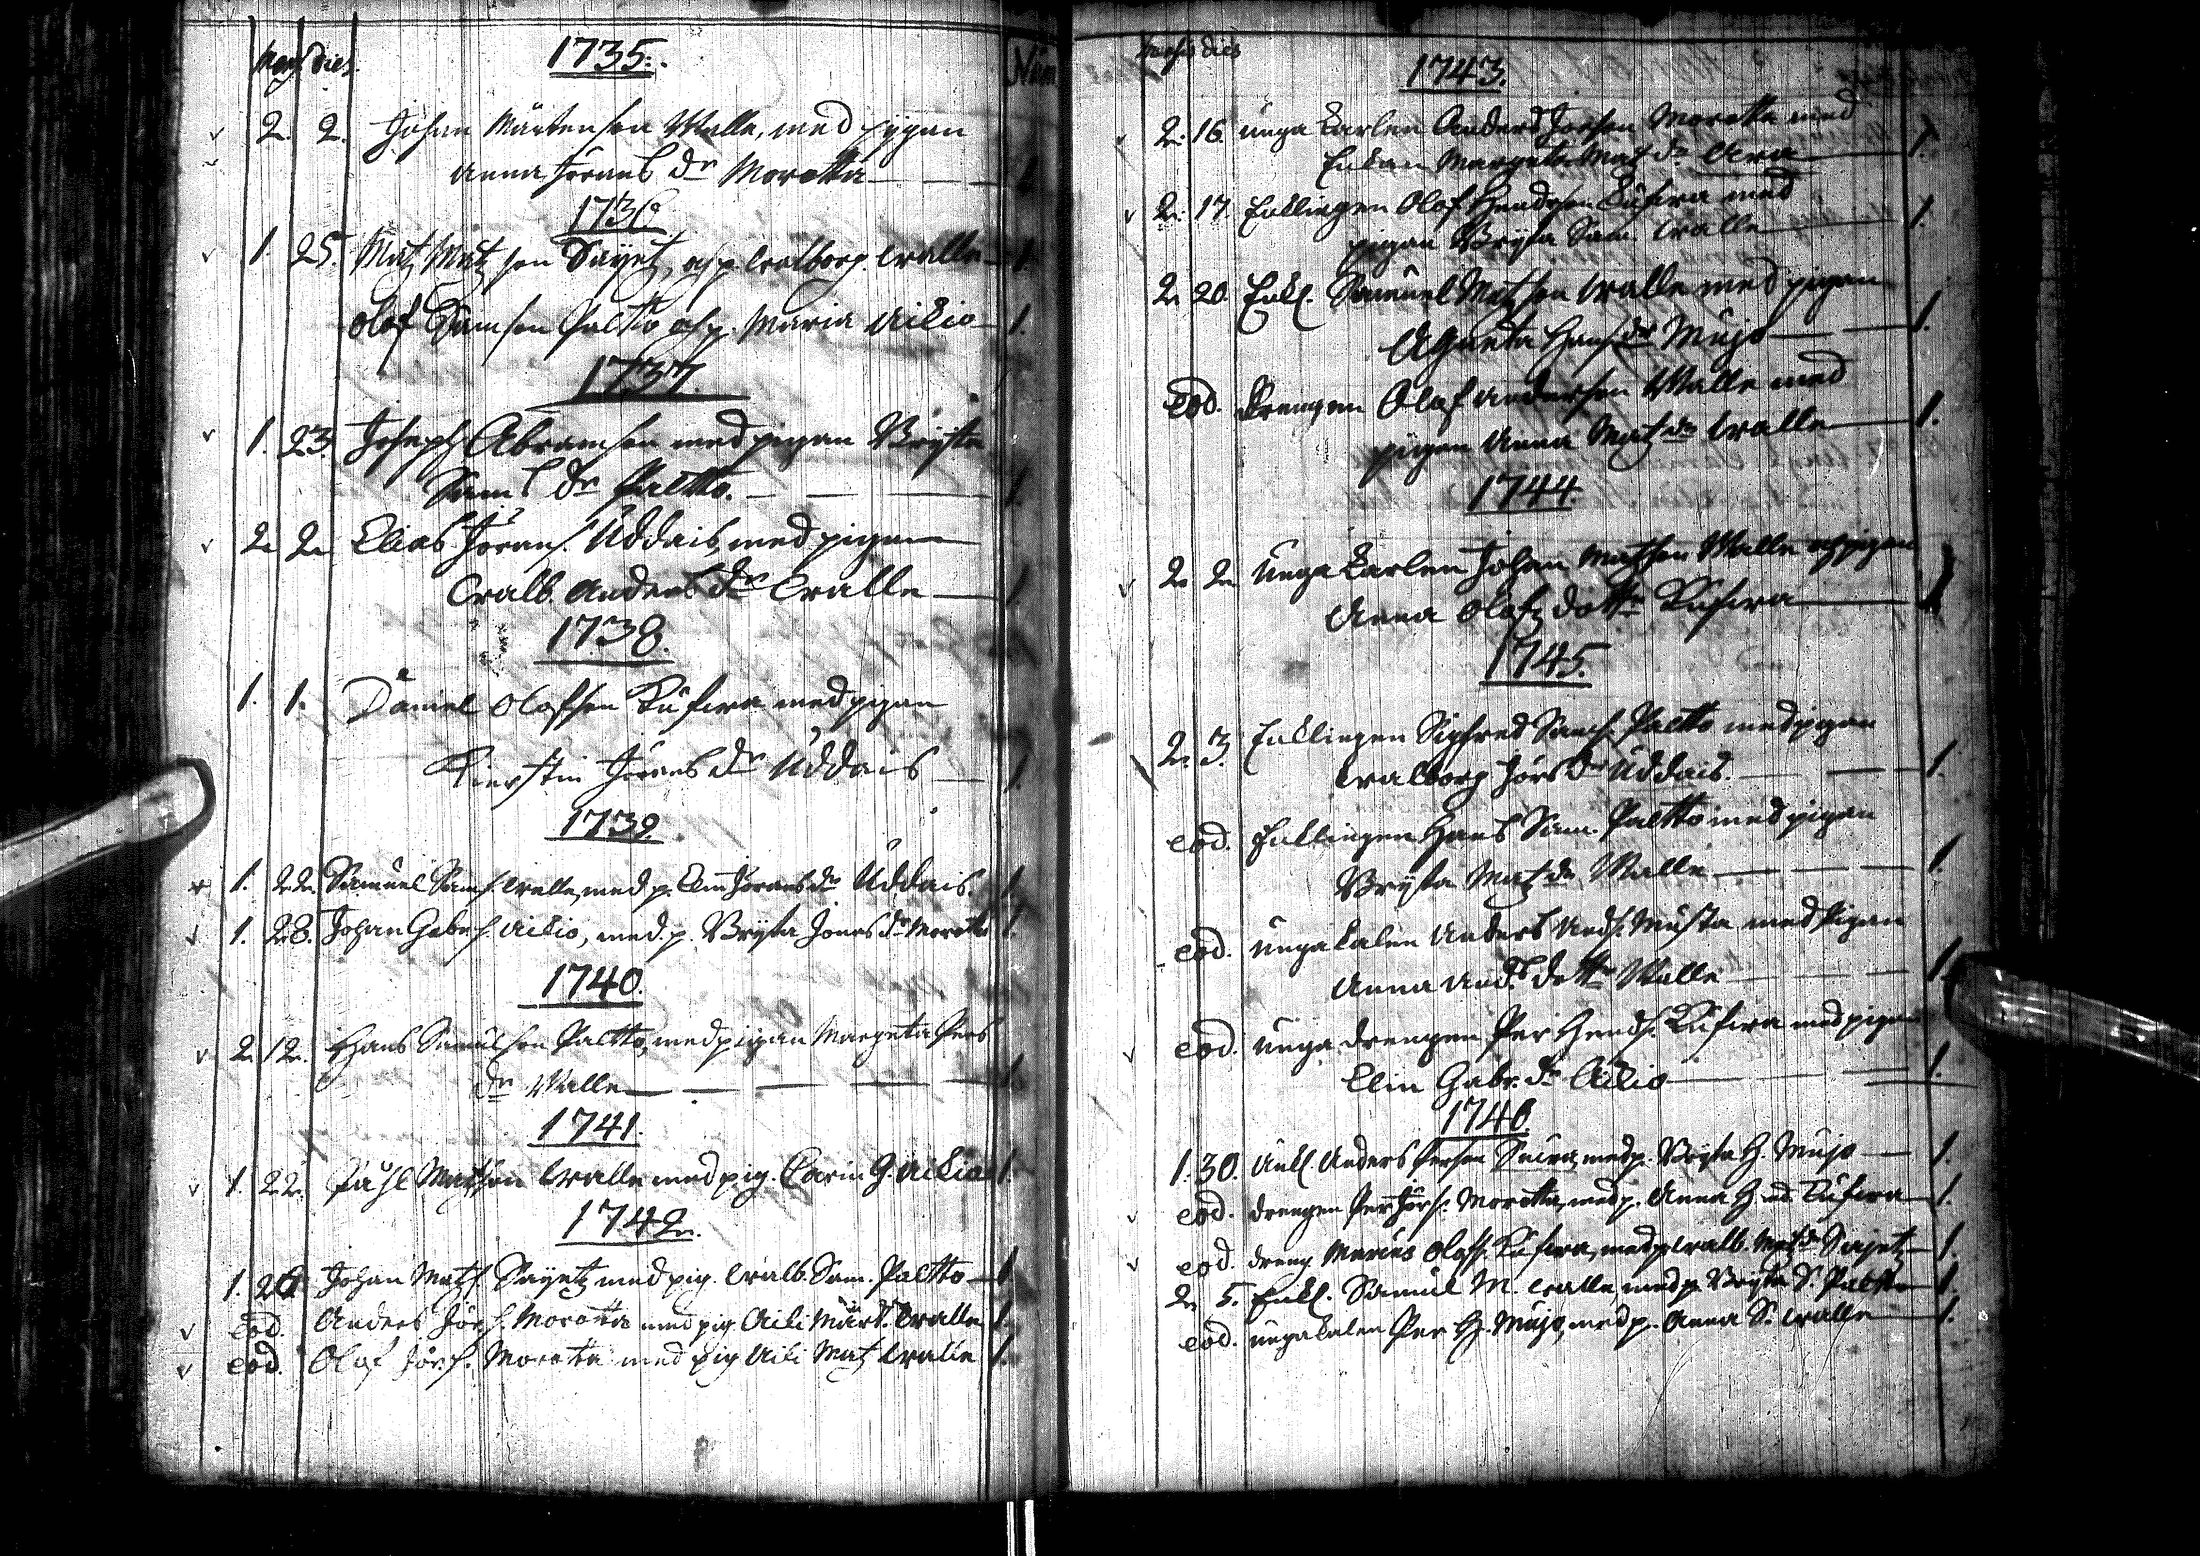 Mens. dies. 1735. Num
2. 2. Johan Mårtensson Walle, med pigan
Anna Jörans dr Morotta — 1.
1736
1. 25. Matz Matzson Sajetz, och p. Walborg. Walle — 1.
Olof Samson Paltto och p. Maria Aikio — 1.
1737.
1. 23. Joseph Abramson med pigan Brijta
Sams dr Paltto. — 1.
2. 2. Elias Jörans. Uddais, med pigan
Walb. Anders dr Walle — 1.
1738.
1. 1. Daniel Olofson Kufwa med pigan
Kierstin Jörans dr Uddais — 1.
1739.
1. 22. Samuel Sams. Walle, med p. Elin Jörans dr Uddais. 1.
1. 28. Johan Gabr. s. Aikio, med. p. Brijta Jörans dr Morotta 1.
1740.
2. 12. Hans Samuelson Paltto, med pigan Margeta Pers
dr Walle — 1.
1741.
1. 22. Påhl Matzson Walle med pig. Carin G. Aikio 1.
1742.
1. 26 Johan Matz s. Sajetz med pig. Walb. Sam. Paltto — 1
eod. Anders Jör. s. Morotta med pig. Aili Mårt. Walle 1.
eod. Olof Jör. s. Morotta med pig Aili Matz Walle 1.
Mens. dies
1743.
2. 16. unga Karlen Anders Jörson Morotta med
Enkan Margeta Matz dr — 1.
2. 17. Enklingen Olof Hendrson Kufwa med
pigan Brijta Sam. Walle — 1.
2. 20. Enkl. Samuel Matzson Walle med pigan
Agneta Hans dr Mujo — 1.
eod. Drengen Olof Anderson Walle med
pigan Anna Matz dr Walle — 1.
1744.
2. 2. Unga Karlen Johan Matzson Walle och pigan
Anna Olofz dotter Kufwa — 1
1745.
2. 3. Enklingen Sigfred Sams. Paltto med pigan
Walborg Jörs dr Uddais. — 1.
eod. Enklingen Hans Sam. Paltto med pigan
Brijta Matz dr Walle — 1.
eod. unga Kalen Anders Ands. Musta med Pigan
Anna And. s dotter Walle — 1.
eod. unga drengen Per Hends. Kufwa med pigan
Elin Gabr. dr Aikio — 1.
1746.
1. 30. Enkl. Anders Person med p. Brijta H. Mujo — 1.
eod. drengen Per Jörs. Morotta, med p. Anna H. Kufwa — 1.
eod. dreng Olofs. Kufwa, med p. Walb. Matz dr Sajetz — 1.
2. 5. Enkl. Samuel M. Walle, med p. Brijta S. Paltto 1.
eod. unga Kalen Per H. Mujo, med p. Anna S. Walle — 1.